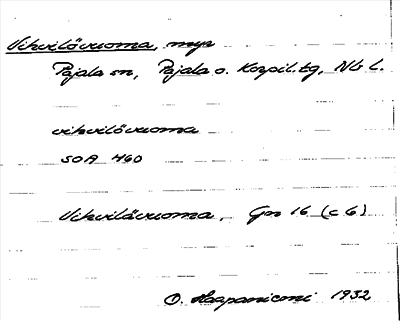 Vihvilövuoma, myr
Pajala sn, Pajala o. Korpil. tg, Nb l.
vihvilövuoma
SOA 460
Vihvilävuoma, Gn 16 (c 6)
O. Haapaniemi 1932